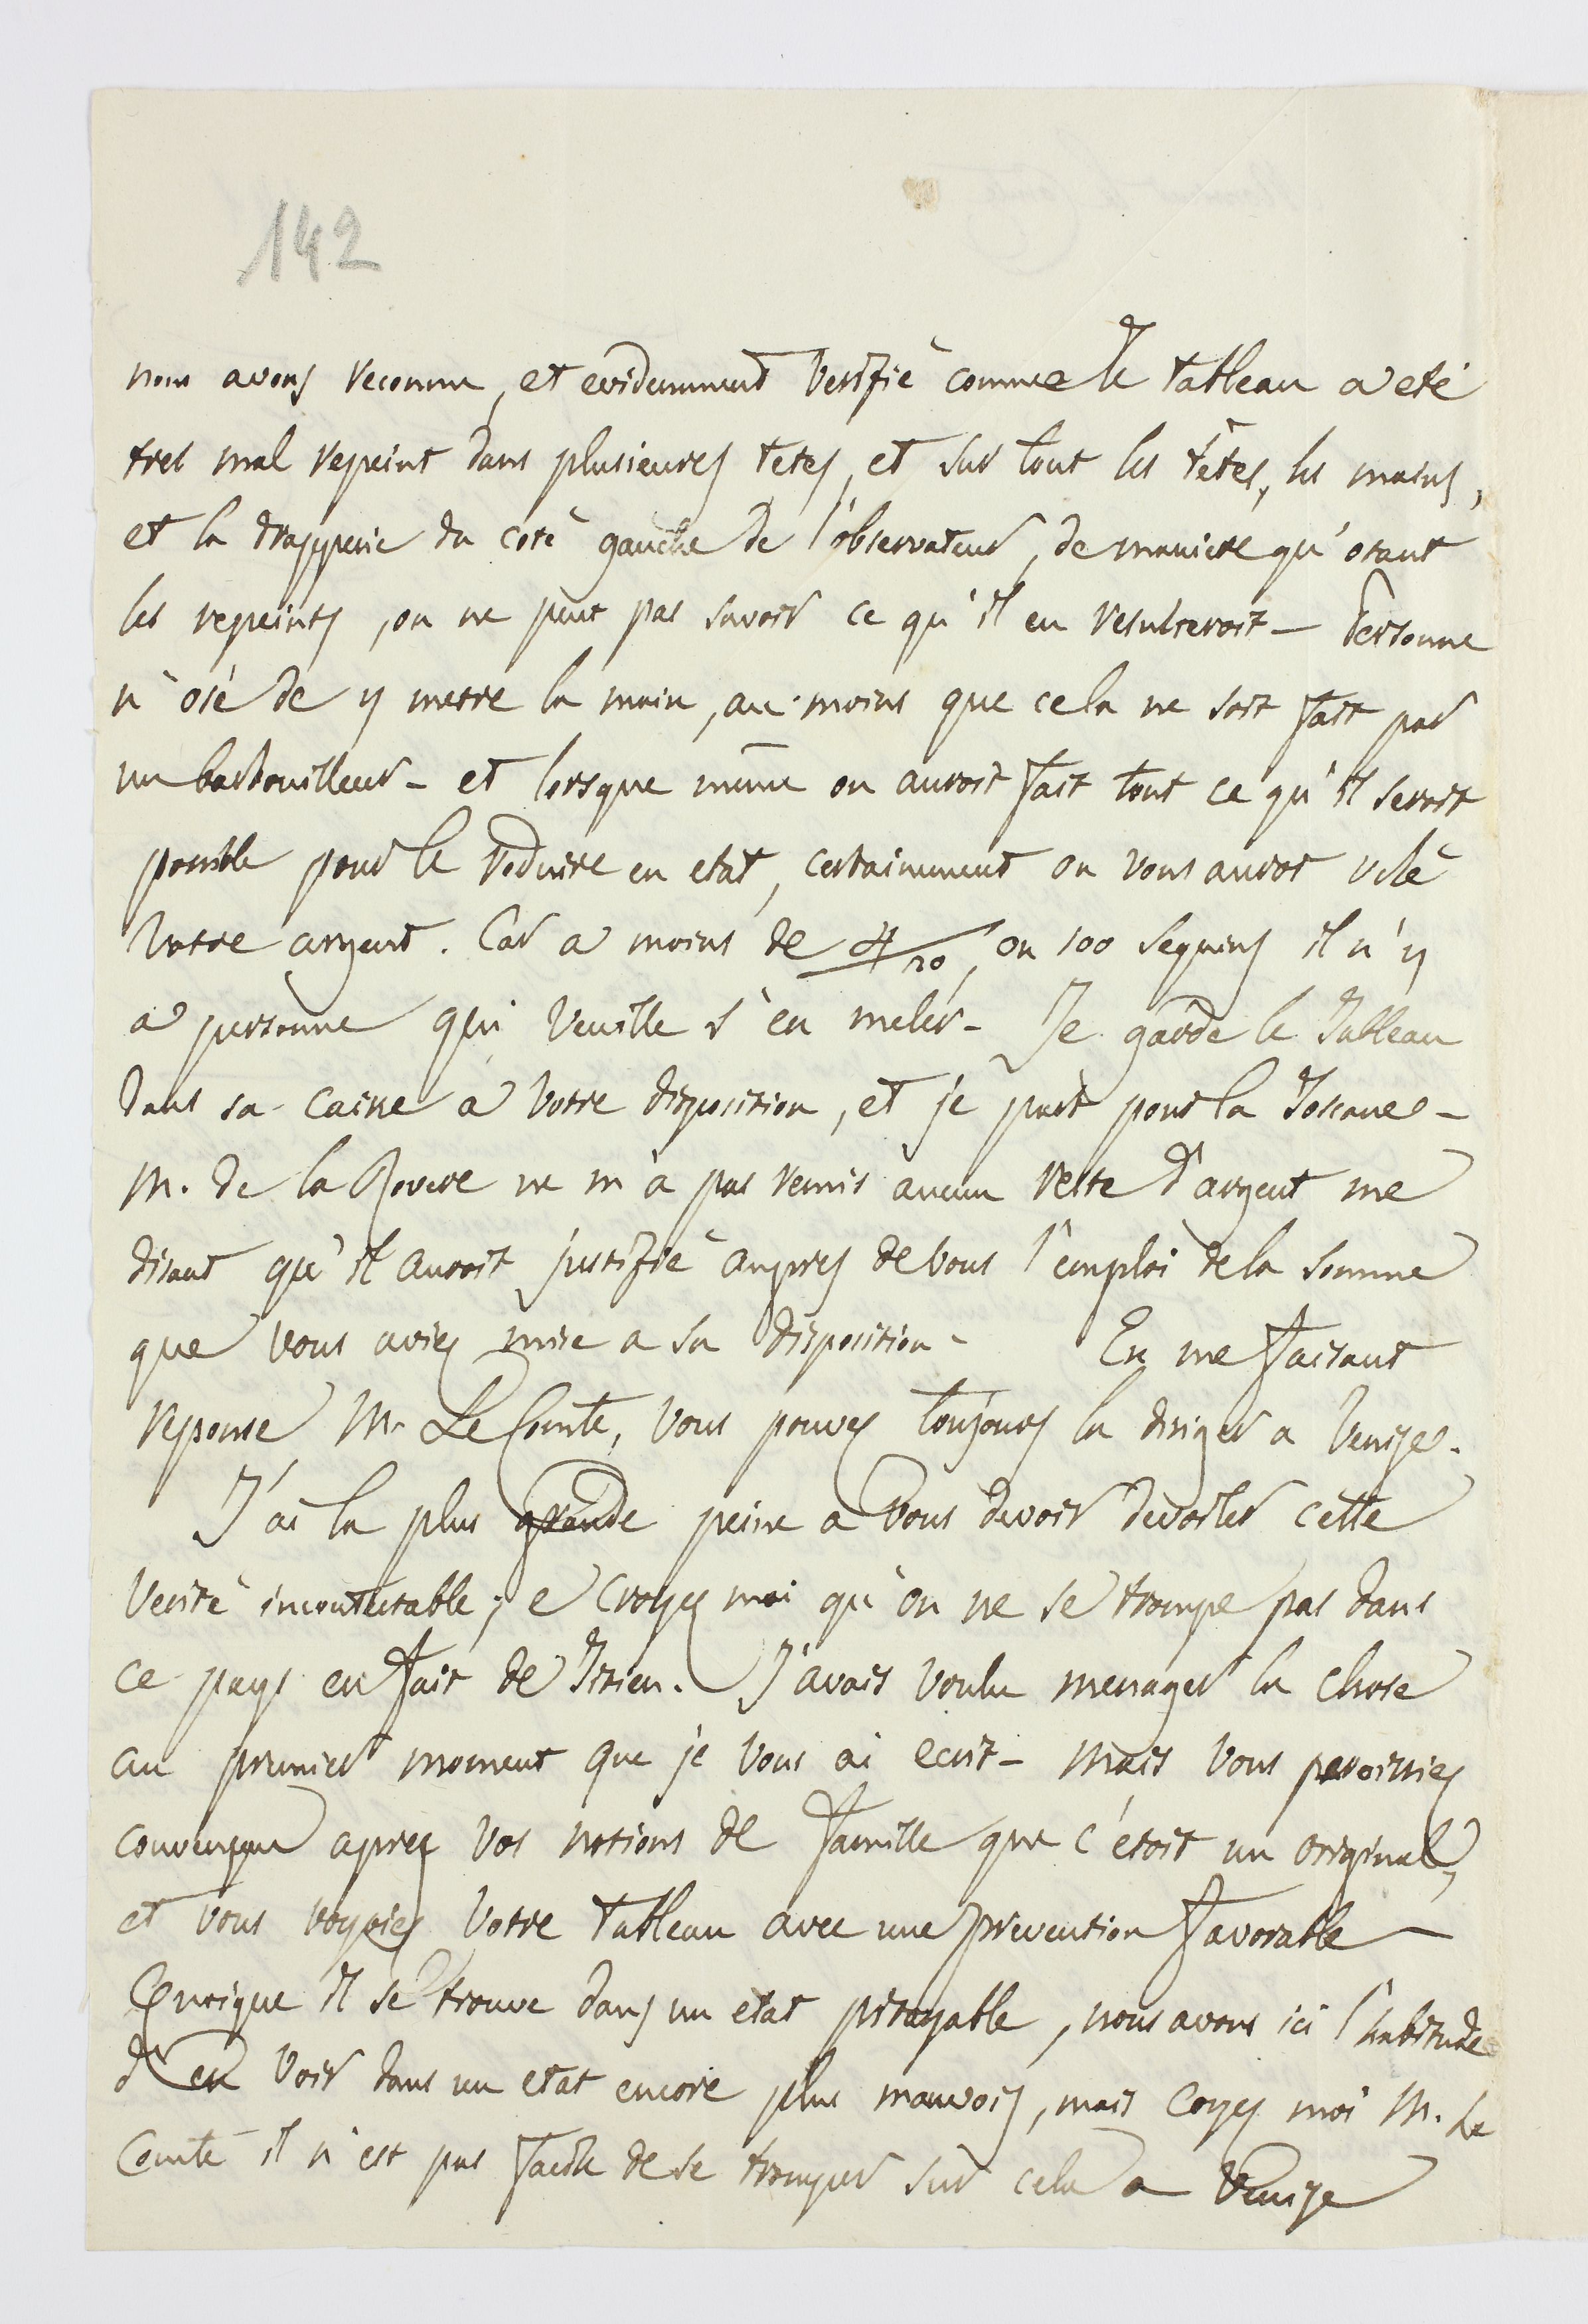 142
nous avons reconnu, et evidemment verifiè comme le tableau a eté
tres mal repeint dans plusieures tetes, et sur tout les têtes, les mains,
et la drapperie du coté gauche de l'observateur, de maniere qu'otant
les repeints, on ne peut pas savoir ce qu'il en resulteroit – Personne
n'osé de y metre la main, au moins que cela ne soit fait par
un barbouilleur – et lorsque même on auroit fait tout ce qu'il seroit
possible pour le reduire en etat, certainement on vous auroit volé
votre argent. Car a moins de 80, ou 100 sequins il n'y
a personne qui veuille s'en meler – Je garde le Tableau
dans sa caisse a votre disposition, et je part pour la Toscane –
M. de la Rovere ne m'a pas remis aucun reste d'argent me
disant qu'il auroit justifiè aupres de vous l'emploi de la somme
que vous aviez mise a sa disposition – En me faisant
reponse M. Le Comte, vous pouvez toujours la diriger a Venise.
J'ai la plus grande peine a vous devoir devoiler cette
verité incontestable; e croyez moi qu'on ne se trompe pas dans
ce pays en fait de Titien. J'avais voulu menager la chose
au premier moment que je vous ai ecrit – Mais vous paroissiez
convenque aprez vos notions de famille que c'étoit un original,
et vous voyiez votre tableau avec une prevention favorable –
Quoique il se trouve dans un etat pitoyable, nous avons ici l'habitude
d'en voir dans un etat encore plus mauvois, mais coyez moi M. Le
Comte il n'est pas facile de se tromper sur cela a Venise